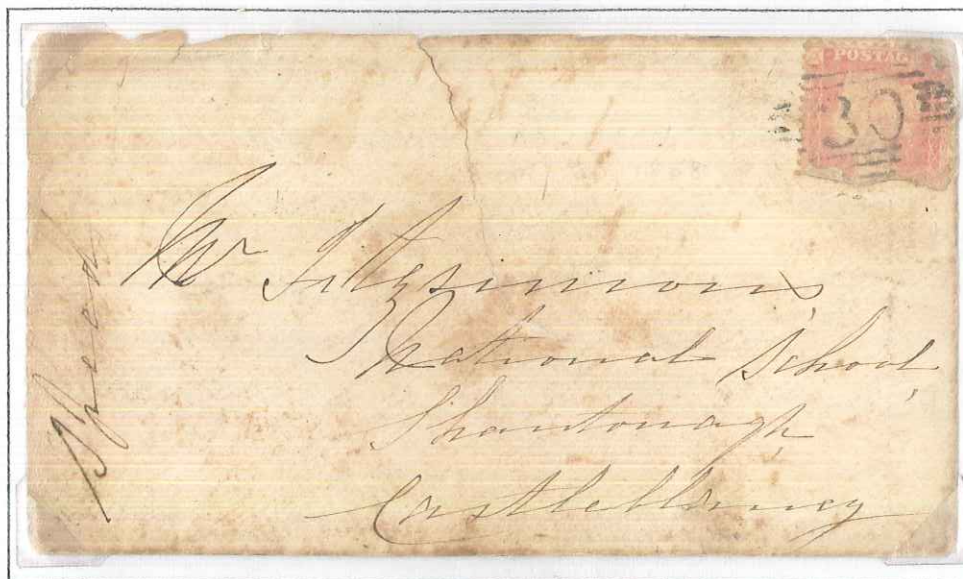 POSTAGE
30
Mr Fitzsimons
National School,
Shantonagh
Castleblaney
Speed